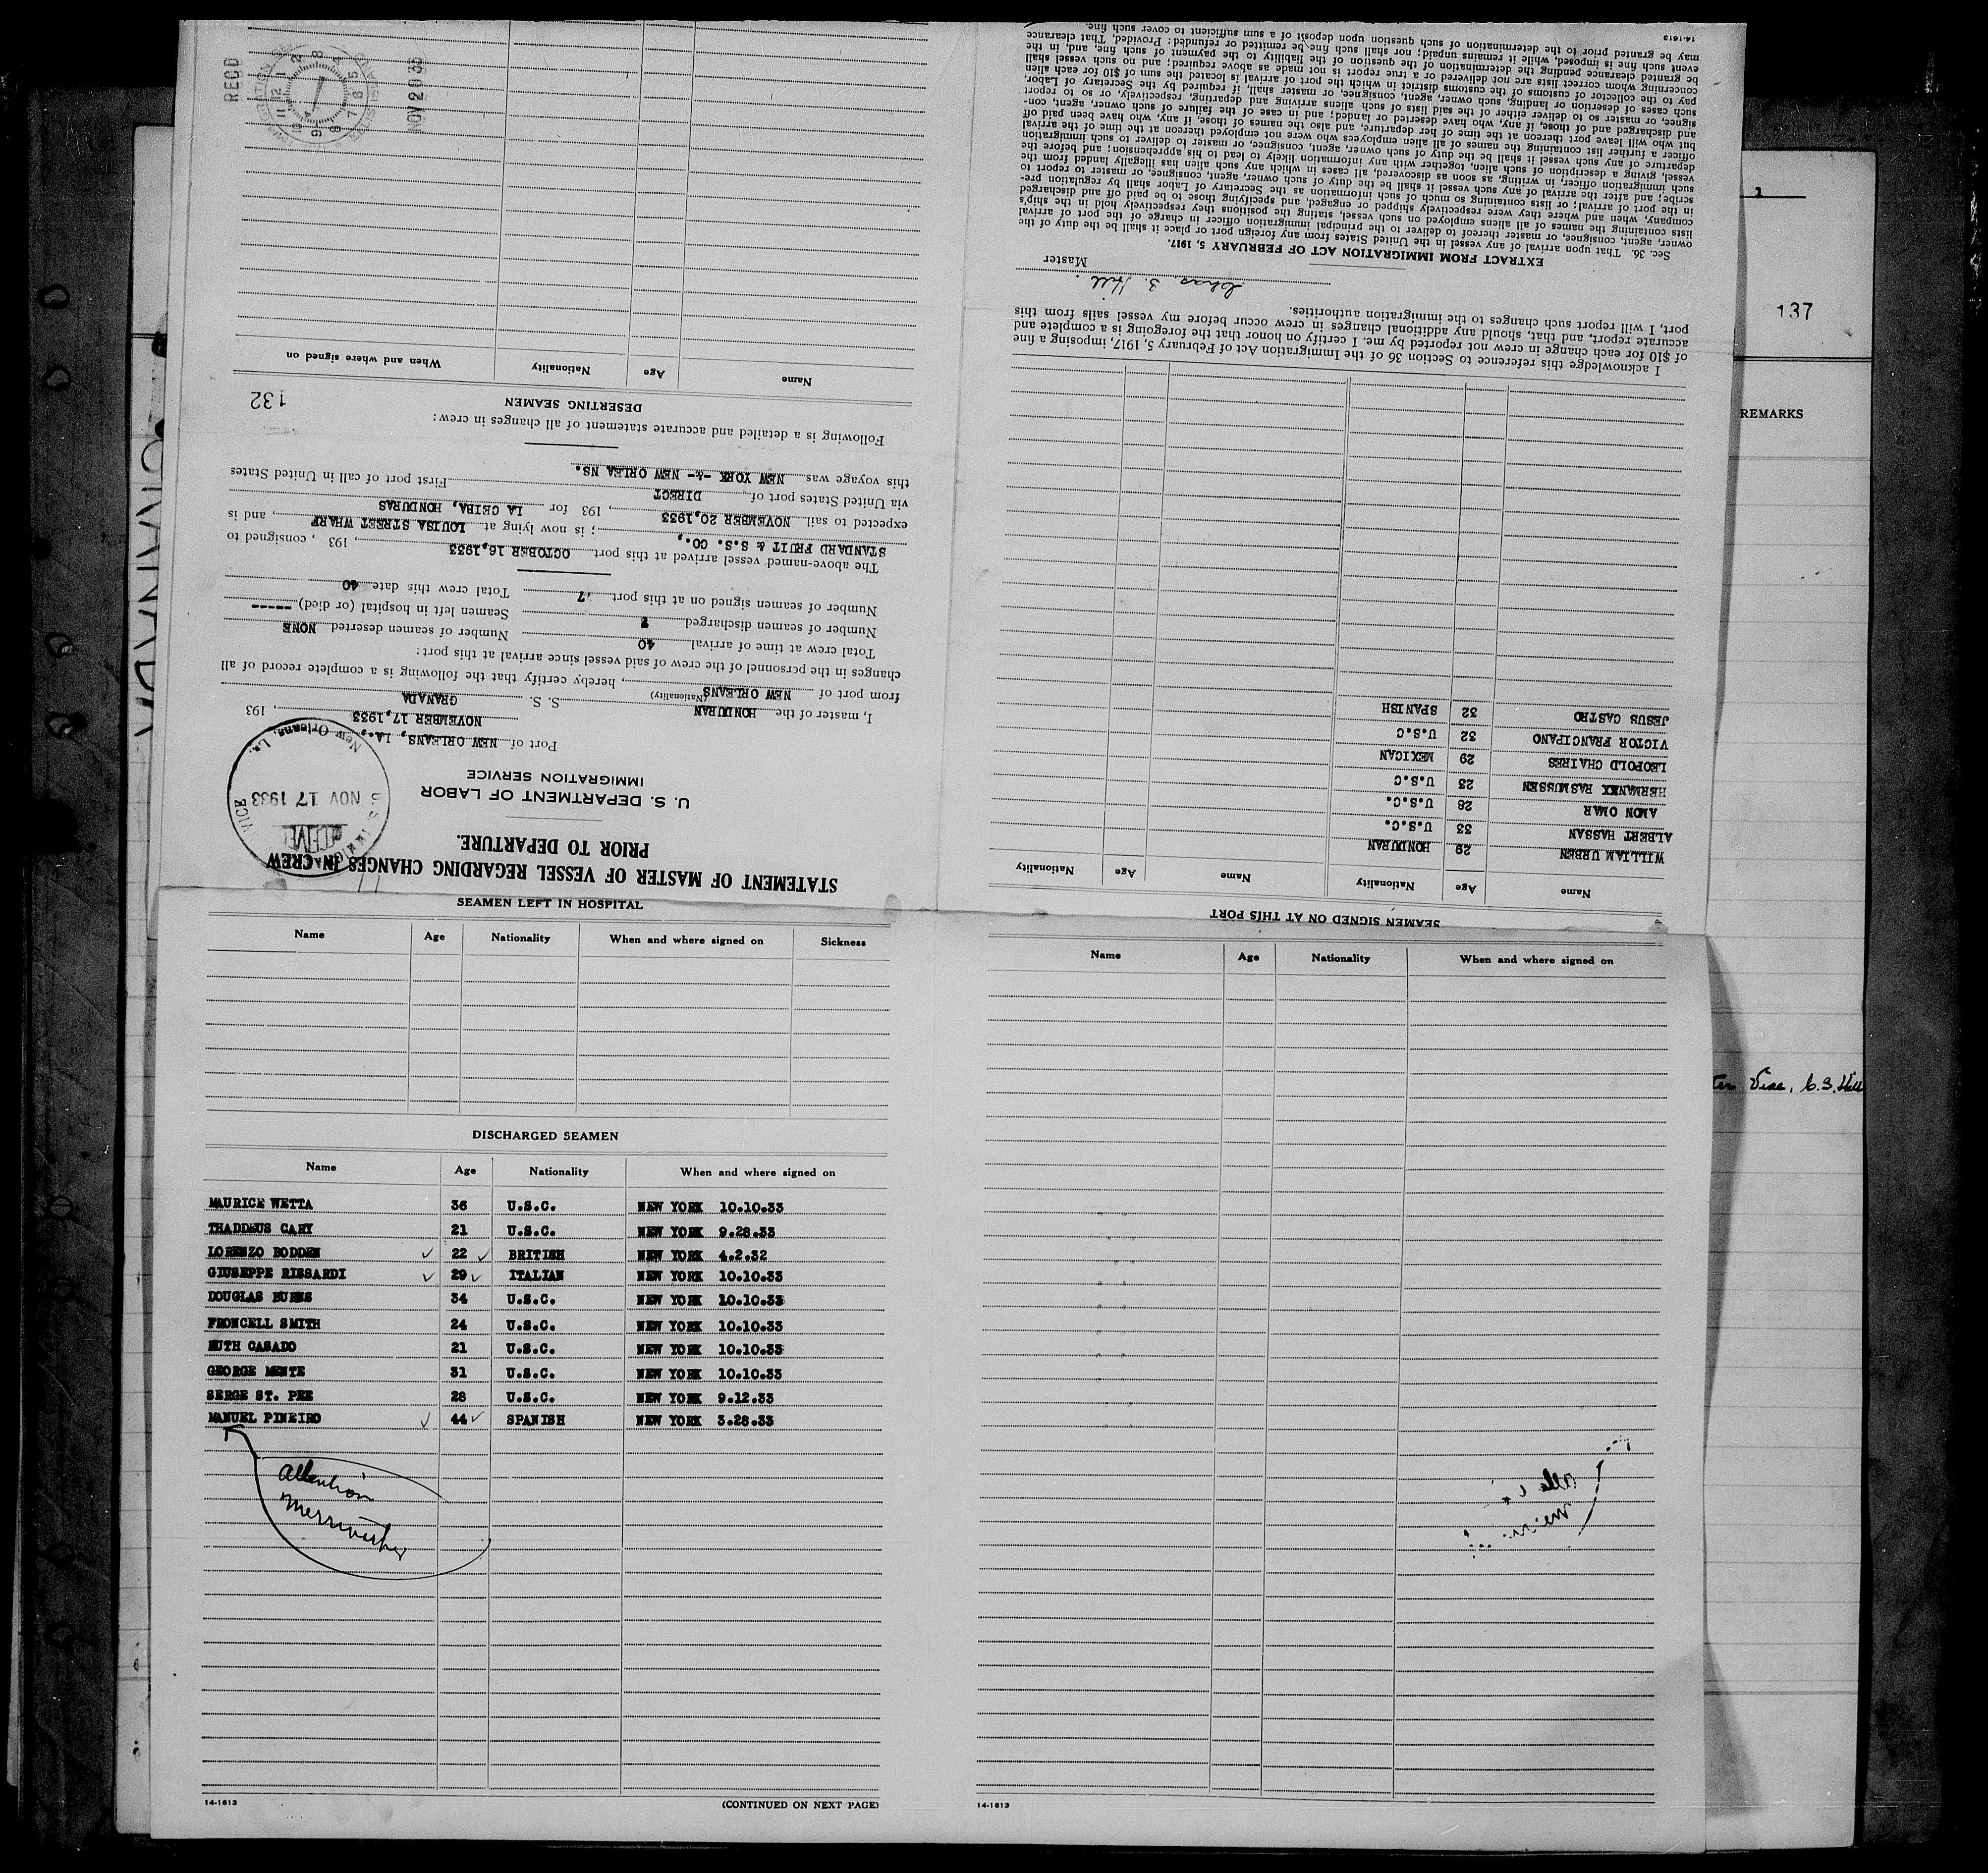 STATEMENT OF MASTER OF VESSEL REGARDING CHANGES IN CREW
PRIOR TO DEPARTURE.
U. S. DEPARTMENT OF LABOR
IMMIGRATION SERVICE
NOV 17 1933
New Orleans, La.
Port of NEW ORLEANS, LA.,
NOVEMBER 17,1933, 193
I, master of the HONDURAN S. S. GRANADA
(Nationality)
from port of NEW ORLEANS, hereby certify that the following is a complete record of all
changes in the personnel of the crew of said vessel since arrival at this port:
Total crew at time of arrival 40 Number of seamen deserted NONE
Number of seamen discharged Seamen left in hospital (or died) -----
Number of seamen signed on at this port 7 Total crew this date 40
The above-named vessel arrived at this port OCTOBER 16,1933, 193 , consigned to
STANDARD FRUIT & S.S. CO., ; is now lying at LOUISA STREET WHARF, and is
expected to sail NOVEMBER 20,1933, 193 for LA CEIBA, HONDURAS
via United States port of DIRECT First port of call in United States
this voyage was NEW YORK -&- NEW ORLEA NS.
Following is a detailed and accurate statement of all changes in crew:
DESERTING SEAMEN
132
Name Age Nationality When and where signed on
RECD
NOV 20 33
SEAMEN LEFT IN HOSPITAL
Name Age Nationality When and where signed on Sickness
DISCHARGED SEAMEN
Name Age Nationality When and where signed on
MAURICE WETTA 36 U.S.C. NEW YORK 10.10.33
THADDEUS CARY 21 U.S.C. NEW YORK 9.28.33
LORENZO BODDEN 22 BRITISH NEW YORK 4.2.32
GIUSEPPE RISSARDI 29 ITALIAN NEW YORK 10.10.33
DOUGLAS BURNS 34 U.S.C. NEW YORK 10.10.33
FRONCELL SMITH 24 U.S.C. NEW YORK 10.10.33
RUTH CASADO 21 U.S.C. NEW YORK 10.10.33
GEORGE MENTE 31 U.S.C. NEW YORK 10.10.33
SERGE ST. PEE 28 U.S.C. NEW YORK 9.12.33
MANUEL PINEIRO 44 SPANISH NEW YORK 3.28.33
Attention
14-1613
(CONTINUED ON NEXT PAGE)
Name Age Nationality When and where signed on
14-1613
SEAMEN SIGNED ON AT THIS PORT
Name Age Nationality Name Age Nationality
WILLIAM URBEN 29 HONDURAN
ALBERT HASSAN 33 U.S.C.
AMON OMAR 26 U.S.C.
HERMANEX RASMUSSEN 23 U.S.C
LEOPOLD CHAIRES 29 MEXICAN
VICTOR FRANCIPANO 32 U.S.C
JESUS CASTRO 32 SPANISH
I acknowledge this reference to Section 36 of the Immigration Act of February 5, 1917, imposing a fine
of $10 for each change in crew not reported by me. I certify on honor that the foregoing is a complete and
accurate report, and that, should any additional changes in crew occur before my vessel sails from this
port, I will report such changes to the immigration authorities.
Chas. S. Hill.
Master
EXTRACT FROM IMMIGRATION ACT OF FEBRUARY 5, 1917.
Sec. 36. That upon arrival of any vessel in the United States from any foreign port or place it shall be the duty of the
owner, agent, consignee, or master thereof to deliver to the principal immigration officer in charge of the port of arrival
lists containing the names of all aliens employed on such vessel, stating the positions they respectively hold in the ship's
company, when and where they were respectively shipped or engaged, and specifying those to be paid off and discharged
in the port of arrival; or lists containing so much of such information as the Secretary of Labor shall by regulation pre-
scribe; and after the arrival of any such vessel it shall be the duty of such owner, agent, consignee, or master to report to
such immigration officer, in writing, as soon as discovered, all cases in which any such alien has illegally landed from the
vessel, giving a description of such alien, together with any information likely to lead to his apprehension; and before the
departure of any such vessel it shall be the duty of such owner, agent, consignee, or master to deliver to such immigration
officer a further list containing the names of all alien employees who were not employed thereon at the time of the arrival
but who will leave port thereon at the time of her departure, and also the names of those, if any, who have been paid off
and discharged and of those, if any, who have deserted or landed; and in case of the failure of such owner, agent, con-
signee, or master so to deliver either of the said lists of such aliens arriving and departing, respectively, or so to report
such cases of desertion or landing, such owner, agent, consignee, or master, shall, if required by the Secretary of Labor,
pay to the collector of customs of the customs district in which the port of arrival is located the sum of $10 for each alien
concerning whom correct lists are not delivered or a true report is not made as above required; and no such vessel shall
be granted clearance pending the determination of the question of the liability to the payment of such fine, and, in the
event such fine is imposed, while it remains unpaid; nor shall such fine be remitted or refunded: Provided, That clearance
may be granted prior to the determination of such question upon deposit of a sum sufficient to cover such fine.
14-1613
137
REMARKS
C.S. Hill